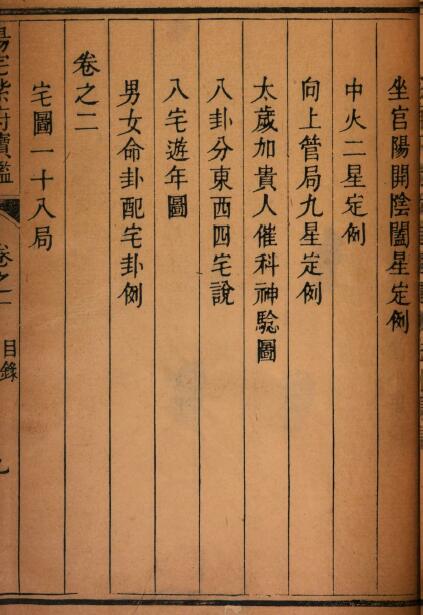 坐官陽開陰闔星定例
中火二星定例
向上管局九星定例
太歲加貴人催科神驗圖
八卦分東西四宅說
八宅遊年圖
男女命卦配宅卦例
卷之二
宅圖一十八局
陽宅紫府寶鑑
卷之一
目錄
九